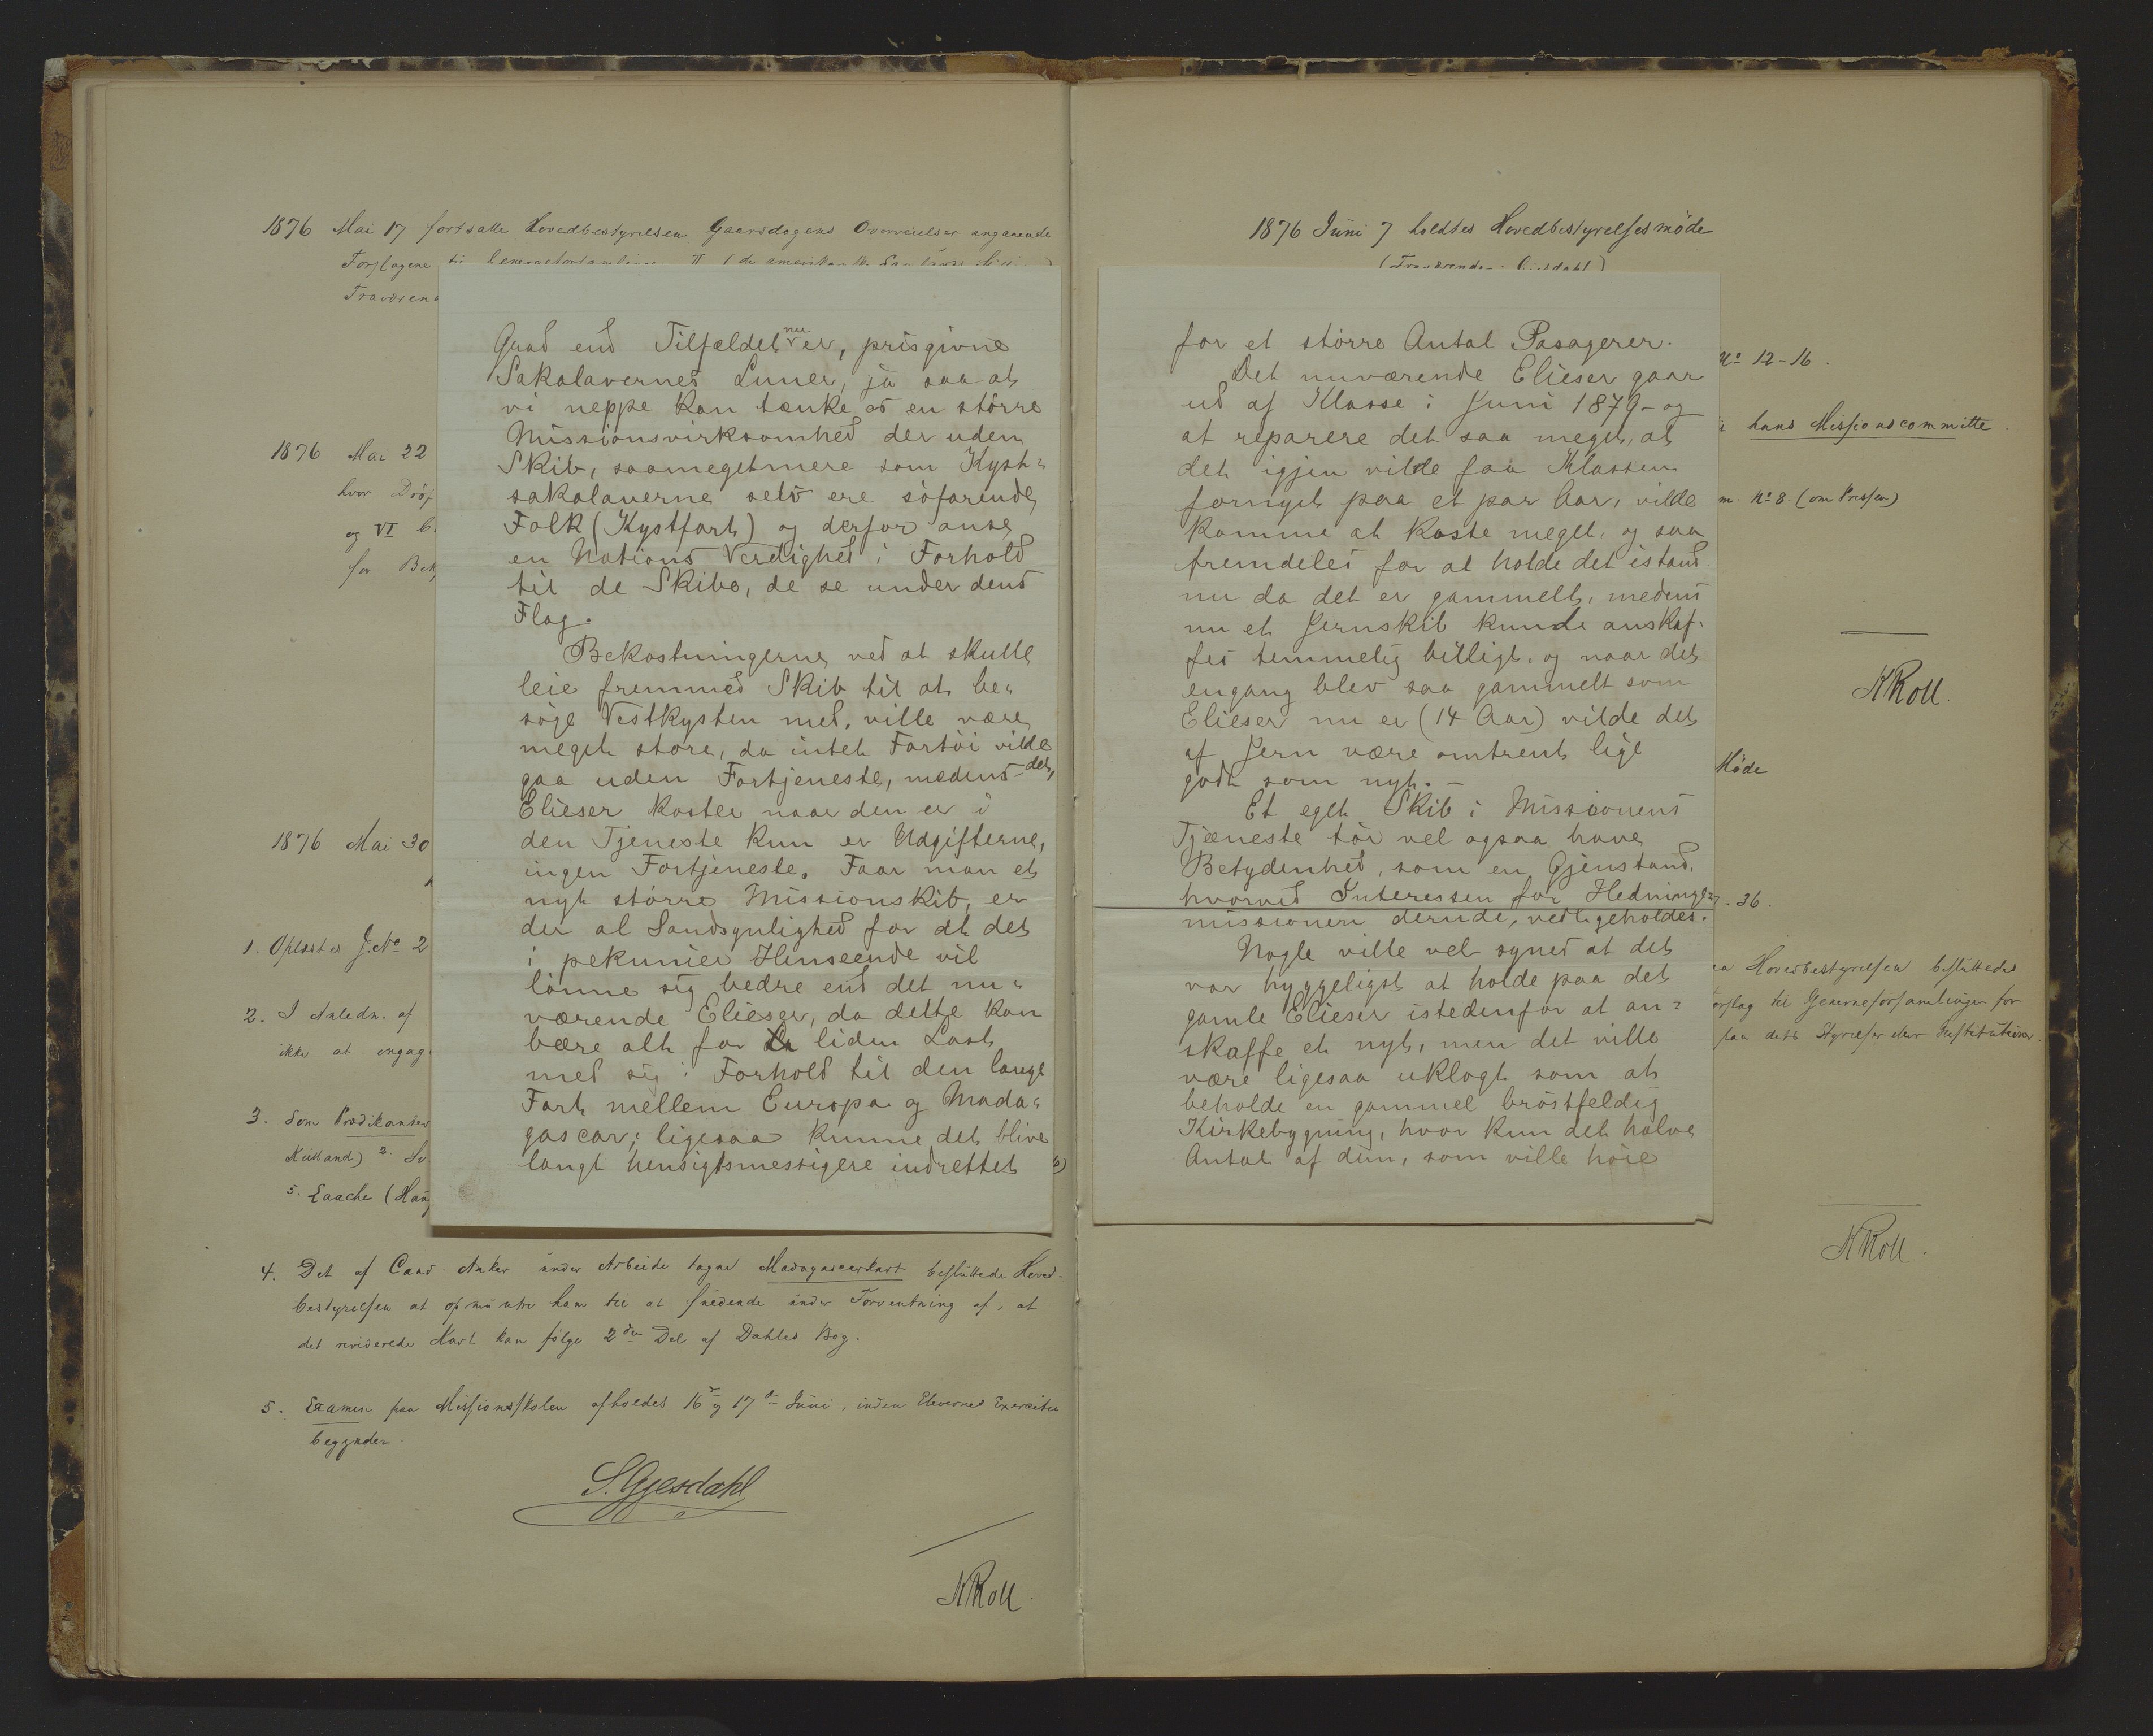 1876 Mai 17 fortsatte Hovedbestyrelsen Gaarsdagens Overveielser angaaende
Forslagene til Generalforsamlingen II (de amerikanske
Fraværen
1876 Mai 22
hvor Drøf
og VI
for Bek
1876 Mai 30
1. Oplæstes J.No 2
2. I Anledn. af
ikke at engag
3. Som Prædikanter
Kielland) 2.
5. Laache (Hau
4. Det af Cand. Anker under Arbeide tagne Madagascarkart besluttede Hoved-
bestyrelsen at opmuntre ham til at fuldende under Forventning af, at
det reviderede Kart kan følge 2den Del af Dahles Bog.
5. Examen paa Missionsskolen afholdes 16de og 17de Juni, inden Elevernes Exercitie
begynder.
S. Gjesdahl
KRoll.
Grad end Tilfældet nu er, prisgivne
Sakalavernes Luner, ja saa at
vi neppe kan tænke os en større
Missionsvirksomhed der uden
Skib, saameget mere som Kyst-
sakalaverne selv ere søfarende
Folk (Kystfart) og derfor anse
en Nations Verdighed i Forhold
til de Skibe, de se under dens
Flag.
Bekostningerne ved at skulle
leie fremmed Skib til at be-
søge Vestkysten med, ville være
meget store, da intet Fartøi vilde
gaa uden Fortjeneste, medens det,
Elieser koster naar den er i
den Tjeneste kun er Udgifterne,
ingen Fortjeneste. Faar man et
nyt større Missionskib, er
der al Sandsynlighed for at det
i pekuniær Henseende vil
lønne sig bedre end det nu-
værende Elieser, da dette kan
bære alt for liden Last
med sig i Forhold til den lange
Fart mellem Europa og Mada-
gascar; ligesaa kunne det blive
langt hensigtsmessigere indrettet
1876 Juni 7 holdtes Hovedbestyrelsesmøde
(Fraværende: Gjesdahl)
No 12-16.
hans Missionscommitte.
No 8 (om Pressen)
KRoll
Møde
-36.
Hovedbestyrelsen besluttedes
Forslag til Generalforsamlingen for
paa dets Styrelser eller Institutioner.
KRoll.
for et større Antal Pasagerer.
Det nuværende Elieser gaar
ud af Klasse i Juni 1879 - og
at reparere det saa meget, at
det igjen vilde faa Klassen
fornyet paa et par Aar, vilde
komme at koste meget, og saa
fremdeles for at holde det istand
nu da det er gammelt, medens
nu et Jernskib kunde anskaf-
fes temmelig billigt, og naar det
engang blev saa gammelt som
Elieser nu er (14 Aar) vilde det
af Jern være omtrent lige
godt som nyt. -
Et eget Skib i Missionens
Tjæneste tør vel ogsaa have
Betydenhed, som en Gjenstand,
hvorved Interessen for Hedninge-
missionen derude, vedligeholdes.
Nogle ville vel synes at det
var hyggeligst at holde paa det
gamle Elieser istedenfor at an-
skaffe et nyt, men det ville
være ligesaa uklogt som at
beholde en gammel brøstfeldig
Kirkebygning, hvor kun det halve
Antal af dem, som ville høre